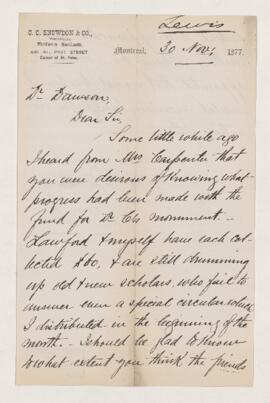 Lewis
C. C. SNOWDON & CO.,
Montreal, 30 Nov. 1877.
Corner of St. Peter.
Dr Dawson,
Dear Sir,
Some little while ago
I heard from Mrs Carpenter that
you were desirous of knowing what
progress had been made with the
fund for Dr C's monument. -
Lawford & myself have each col-
lected $60, & are still drumming
up old & new scholars, who fail to
answer even a special circular which
I distributed in the beginning of the
month. - I should be glad to know
to what extent you think the friends